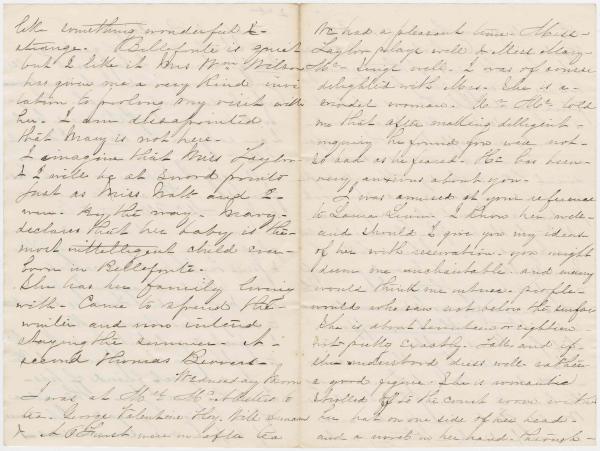 like something wonderful &
strange. Bellefonte is quiet
but I like it Mrs Wm Wilson
has given me a very kind invi
tation to prolong my visit with
her. I am dissapointed
that Mary is not here.
I imagine that Miss Taylor
& I will be at sword points
just as Miss Watt and I
were. By the way. Mary
declares that her baby is the
most intelligent child ever
born in Bellefonte.
She has her family living
with. Came to spend the
winter and now intend
staying the summer. A
second Thomas
Wednesday Morn
I was at Mrs to
tea. George Valentine Hoy. Will
& A Furst were in after tea
We had a pleasant time. Miss
Taylor plays well & Miss Mary
Mc sings well. I was of course
delighted with Mrs. She is a
model woman. Mr Mc told
me that after making dilligent
inquiry he found you were not
so bad as he feared. He has been
very anxious about you.
I was amused at your reference
to Laura I know her well
and should I give you my ideas
of her with reservation. you might
deem me uncharitable and many
would think me untrue. people
would who saw not below the surface
She is about seventeen or eighteen
not pretty exactly. Talls and if
she understood dress well
a good figure. She is romantic
strolled to the court room with
her hat on one side of her head
and a novel in her hand. through